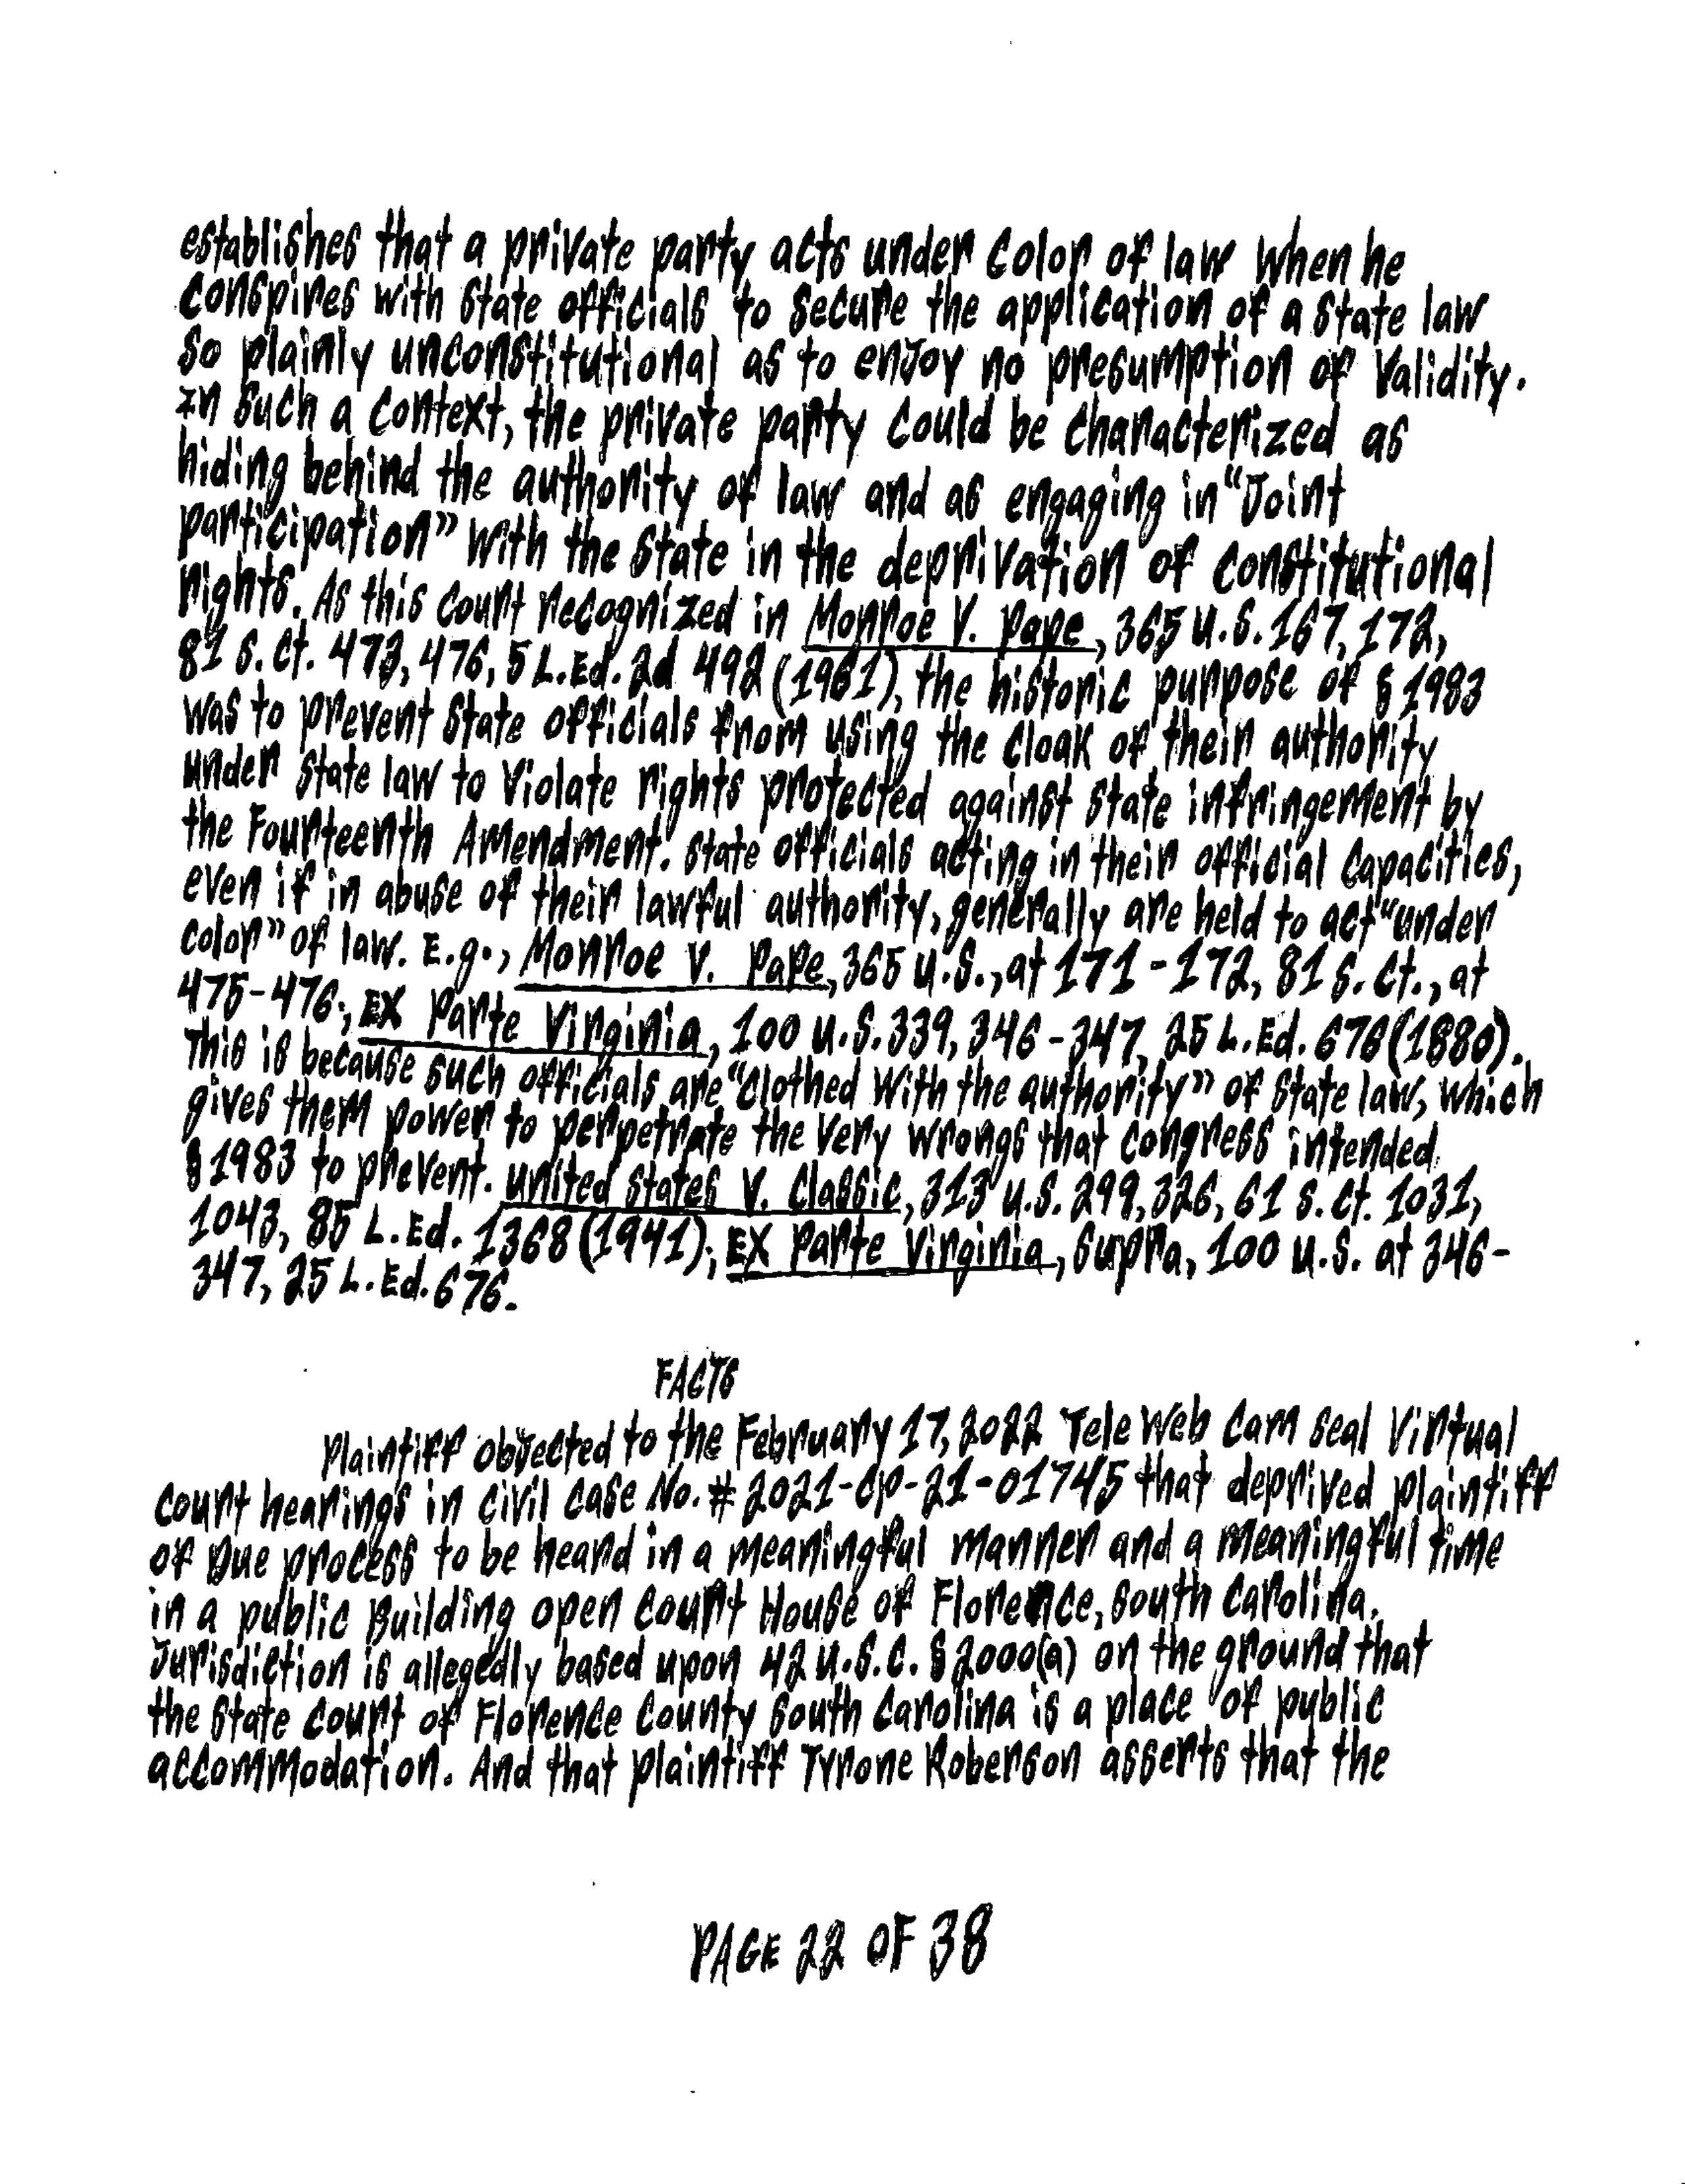 establishes that a private party acts under color of law when he
conspires with state officials to secure the application of a state law
so plainly unconstitutional as to enjoy no presumption of validity.
In such a context, the private party could be characterized as
hiding behind the authority of law and as engaging in "Joint
participation" with the state in the deprivation of constitutional
rights. As this court recognized in Monroe V. Pape, 365 U.S. 167, 172,
81 S. Ct. 473, 476, 5 L.Ed. 2d 492 (1961), the historic purpose of § 1983
was to prevent state officials from using the cloak of their authority
under state law to violate rights protected against state infringement by
the Fourteenth Amendment. State officials acting in their official capacities,
even if in abuse of their lawful authority, generally are held to act "under
color" of law. E.g., Monroe V. Pape, 365 U.S., at 171-172, 81 S. Ct., at
475-476; EX Parte Virginia, 100 U.S. 339, 346-347, 25 L.Ed. 676 (1880).
This is because such officials are "clothed with the authority" of state law, which
gives them power to perpetrate the very wrongs that congress intended
§ 1983 to prevent. United States V. Classic, 313 U.S. 299, 326, 61 S. Ct. 1031,
1043, 85 L.Ed. 1368 (1941); EX Parte Virginia, Supra, 100 U.S. at 346-
347, 25 L.Ed. 676.
FACTS
Plaintiff objected to the February 17, 2022 Tele Web Cam seal Virtual
court hearings in civil case No. # 2021-cp-21-01745 that deprived plaintiff
of Due process to be heard in a meaningful manner and a meaningful time
in a public Building open court House of Florence, South Carolina.
Jurisdiction is allegedly based upon 42 U.S.C. § 2000(a) on the ground that
the state court of Florence County South Carolina is a place of public
accommodation. And that plaintiff Tyrone Roberson asserts that the
PAGE 22 OF 38